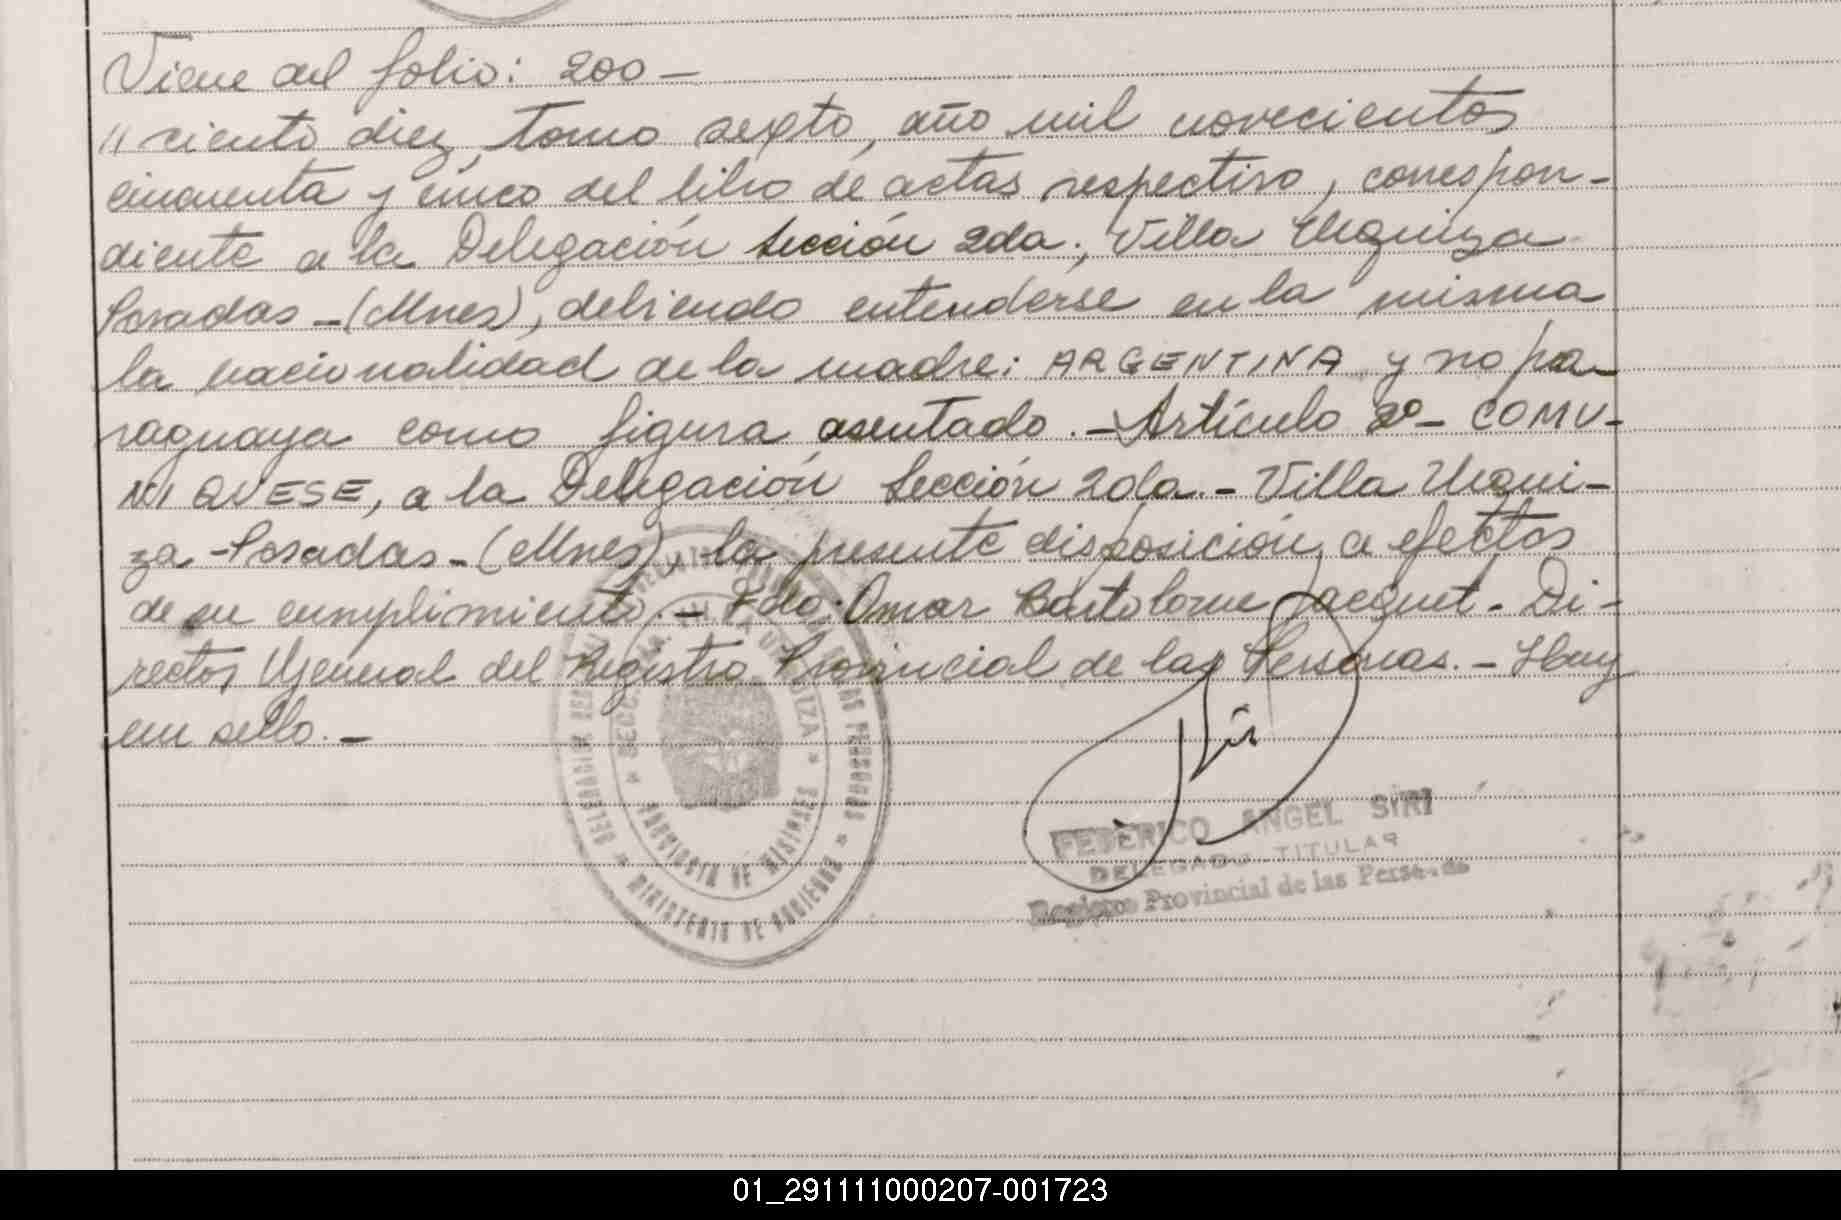 Viene del folio: 200 —
// ciento diez, tomo sexto, año mil novecientos
cincuenta y cinco del libro de actas respectivo, correspon-
diente a la Delegación Sección 2da., Villa Urquiza
Posadas - (Mnes), debiendo entenderse en la misma
la nacionalidad de la madre: ARGENTINA y no pa-
raguaya como figura asentado. - Artículo 2º - COMU-
NIQUESE, a la Delegación Sección 2da. - Villa Urqui-
za - Posadas - (Mnes), la presente disposición, a efectos
de su cumplimiento. - Fdo: Omar Bartolome Jacquet - Di-
rector General del Registro Provincial de las Personas. - Hay
un sello. -
SECC. URQUIZA
PROVINCIA DE MISIONES
DE LAS PERSONAS
MINISTERIO DE GOBIERNO
FEDERICO ANGEL SIRI
DELEGADO TITULAR
Registro Provincial de las Personas
01_291111000207-001723